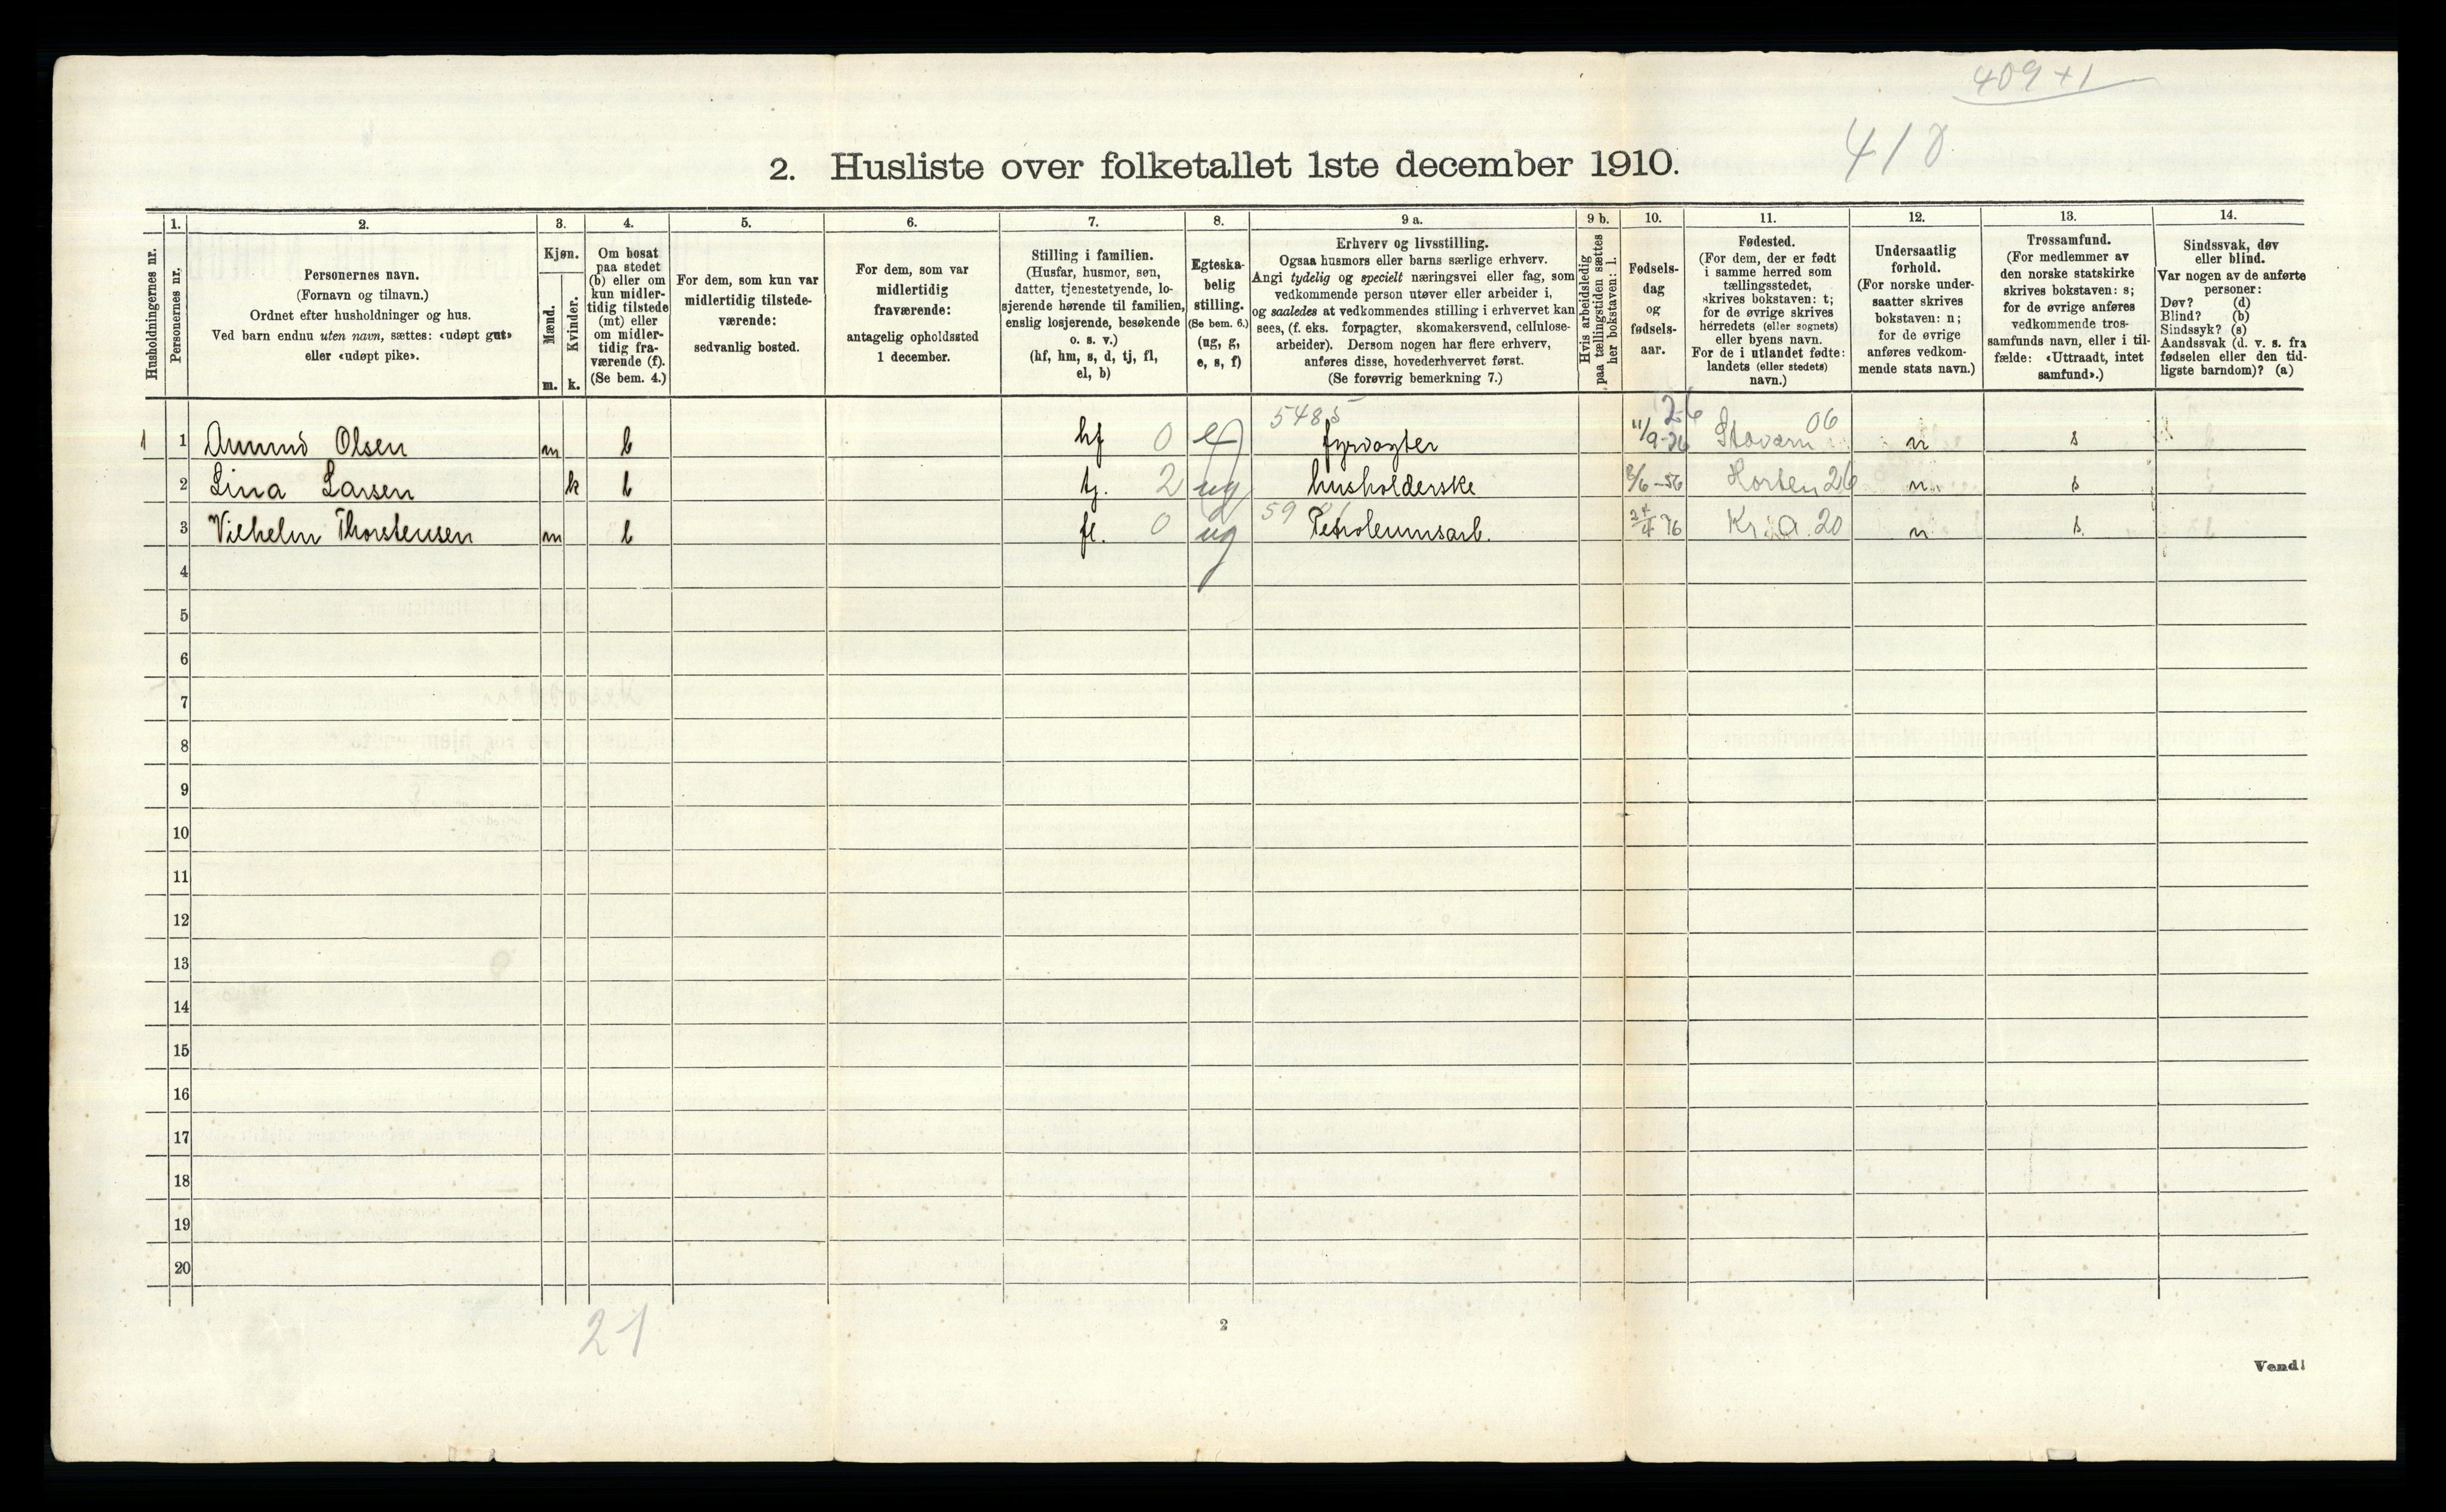 409+1
410
2. Husliste over folketallet 1ste december 1910.
Husholdningernes nr.
1. Personernes nr.
2. Personernes navn.
(Fornavn og tilnavn.)
Ordnet efter husholdninger og hus.
Ved barn endnu uten navn, sættes: «udøpt gut»
eller «udøpt pike».
3. Kjøn.
Mænd. m.
Kvinder. k.
4. Om bosat
paa stedet
(b) eller om
kun midler-
tidig tilstede
(mt) eller
om midler-
tidig fra-
værende (f).
(Se bem. 4.)
5. For dem, som kun var
midlertidig tilstede-
værende:
sedvanlig bosted.
6. For dem, som var
midlertidig
fraværende:
antagelig opholdssted
1 december.
7. Stilling i familien.
(Husfar, husmor, søn,
datter, tjenestetyende, lo-
sjerende hørende til familien,
enslig losjerende, besøkende
o. s. v.)
(hf, hm, s, d, tj, fl,
el, b)
8. Egteska-
belig
stilling.
(Se bem. 6.)
(ug, g,
e, s, f)
9 a. Erhverv og livsstilling.
Ogsaa husmors eller barns særlige erhverv.
Angi tydelig og specielt næringsvei eller fag, som
vedkommende person utøver eller arbeider i,
og saaledes at vedkommendes stilling i erhvervet kan
sees, (f. eks. forpagter, skomakersvend, cellulose-
arbeider). Dersom nogen har flere erhverv,
anføres disse, hovederhvervet først.
(Se forøvrig bemerkning 7.)
9 b. Hvis arbeidsledig
paa tællingstiden sættes
her bokstaven: l.
10. Fødsels-
dag
og
fødsels-
aar.
11. Fødested.
(For dem, der er født
i samme herred som
tællingsstedet,
skrives bokstaven: t;
for de øvrige skrives
herredets (eller sognets)
eller byens navn.
For de i utlandet fødte:
landets (eller stedets)
navn.)
12. Undersaatlig
forhold.
(For norske under-
saatter skrives
bokstaven: n;
for de øvrige
anføres vedkom-
mende stats navn.)
13. Trossamfund.
(For medlemmer av
den norske statskirke
skrives bokstaven: s;
for de øvrige anføres
vedkommende tros-
samfunds navn, eller i til-
fælde: «Uttraadt, intet
samfund».)
14. Sindssvak, døv
eller blind.
Var nogen av de anførte
personer:
Døv? (d)
Blind? (b)
Sindssyk? (s)
Aandssvak (d. v. s. fra
fødselen eller den tid-
ligste barndom)? (a)
5485 26 06
1 1 Amund Olsen m b hf 0 fyrvogter 11/9-26 Stavern n s
2 Lina Larsen k b tj. 2 ug husholderske 8/6-56 Horten 26 n s
59
3 Vilhelm Thorstensen m b fl. 0 ug Petroleumsarb. 24/4 76 Kr.a. 20 n s
4
5
6
7
8
9
10
11
12
13
14
15
16
17
18
19
20
21
2
Vend!